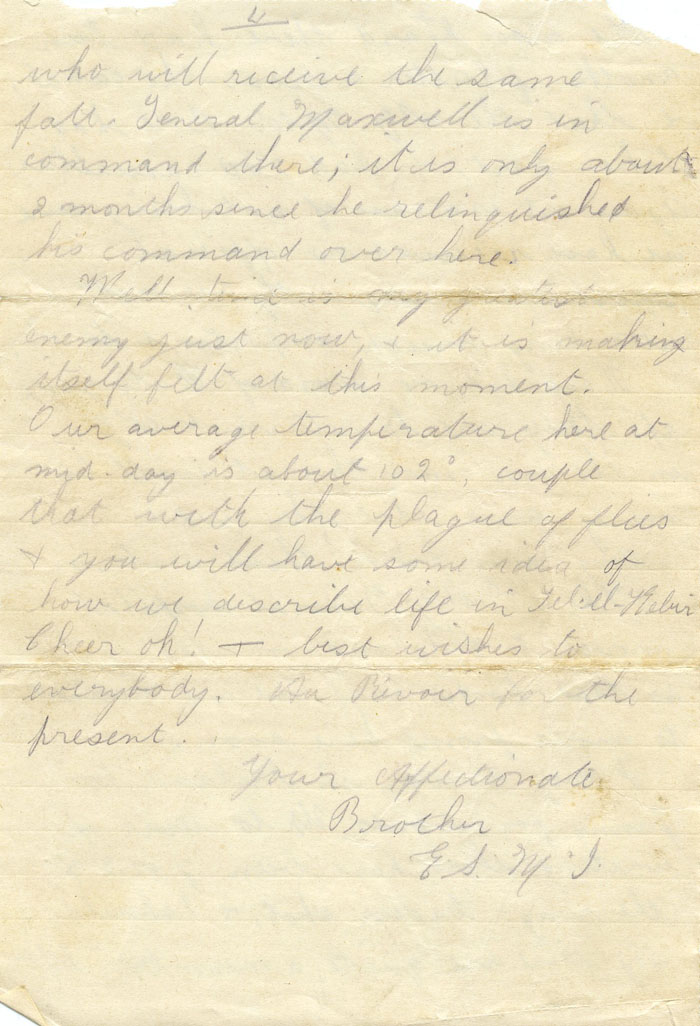 4
who will receive the same
fate. General Maxwell is in
command there; it is only about
2 months since he relinquished
his command over here.
Well time is my greatest
enemy just now, + it is making
itself felt at this moment.
Our average temperature here at
mid-day is about 102°, couple
that with the plague of flies
+ you will have some idea of
how we describe life in Tel-el-Kebir
Cheer oh! + best wishes to
everybody. Au Revoir for the
present.
Your Affectionate
Brother
E S. M I.